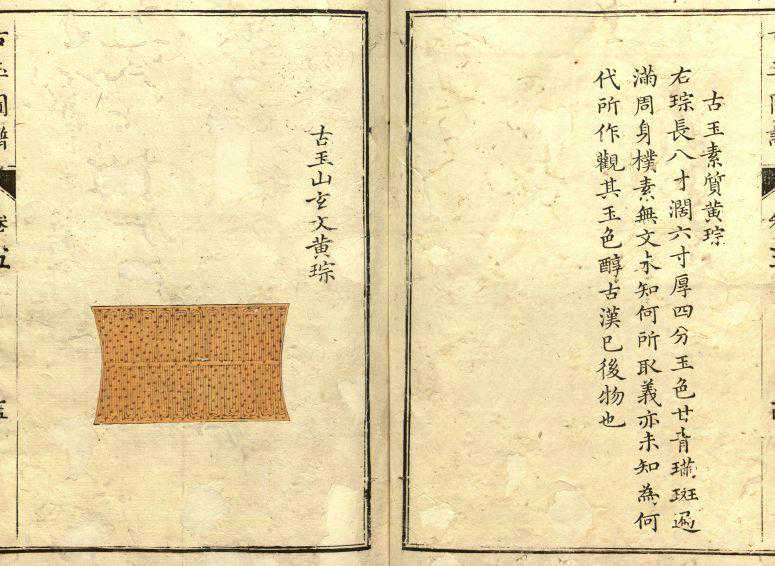 古玉素質黃琮
右琮長八寸濶六寸厚四分玉色甘青璊斑遍
滿周身樸素無文未知何所取義亦未知為何
代所作觀其玉色醇古漢已後物也
古玉山玄文黃琮
古玉圖譜
卷五